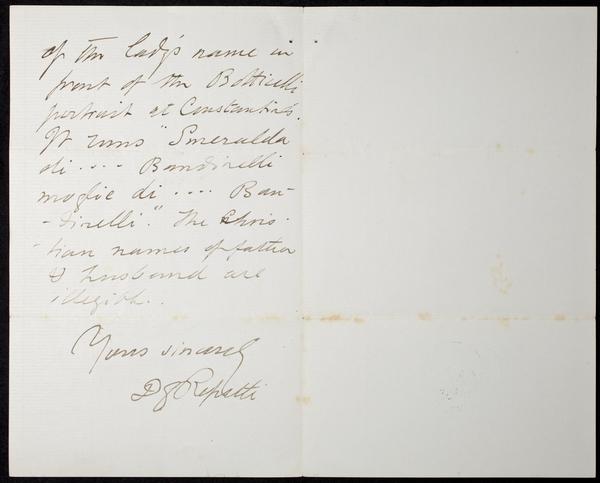 of the lady's name in
front of the Botticelli
portrait at Constantine's.
It runs "Smeralda
di .... Bandinelli
moglie di .... Ban-
-dinelli". The Chris-
-tian names of father
& husband are
illegible.
Yours sincerely
D G Rossetti